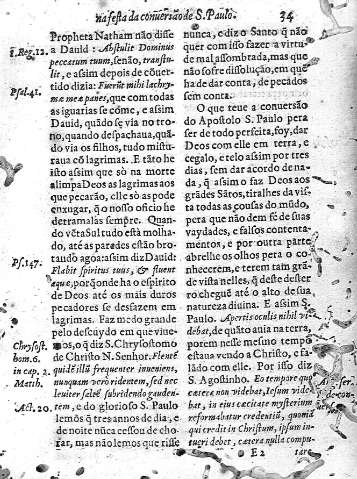 na festa da conuersão de S. Paulo. 34
Propheta Natham não disse
a Dauid: Abstulit Dominus
peccatum tuum, senão, transtu-
lit, e assim depois de cõuer-
tido dizia: Fuerũt mihi lachry-
mæ meæ panes, que com todas
as iguarias se cóme, e assim
Dauid, quãdo se via no tro-
no, quando despachaua, quã-
do via os filhos, tudo mistu-
raua cõ lagrimas. E tãto he
isto assim que só na morte
alimpa Deos as lagrimas aos
que pecarão, elle só as pode
enxugar, q̃ o nosso officio he
derramalas sempre. Quan-
do vẽta Sul tudo está molha-
do, até as paredes estão bro-
tando agoa: assim diz Dauid:
Flabit spiritus tuus, & fluent
aquæ, porq̃onde ha o espirito
de Deos até os mais duros
pecadores se desfazem em
lagrimas. Faz me do grande
pelo descuydo em que viue-
mos, o q̃ diz S. Chrysostomo
de Christo N. Senhor. Flentẽ
quidẽ illũ frequenter inuenies,
nunquam verò ridentem, sed nec
leuiter saltẽ subridendo gauden-
tem, e do glorioso S. Paulo
lemòs q̃ tres annos de dia, e
de noite nũca cessou de cho-
rar, mas não lemos que risse
1. Reg. 12.
Psal. 41.
Ps. 147.
Chrysost.
hom. 6.
in cap. 2.
Matth.
Act. 20.
nunca, e diz o Santo q̃ não
quer com isso fazer a virtu-
de mal assombrada, mas que
não sofre dissolução, em quẽ
ha de dar conta, de pecados
sem conta.
O que teue a conuersão
do Apostolo S. Paulo pera
ser de todo perfeita, foy, dar
Deos com elle em terra, e
cegalo, e telo assim por tres
dias, sem dar acordo de na-
da, q̃ assim o faz Deos aos
grãdes Sãtos, tiralhes da vis
ta todas as cousas do mũdo,
pera que não dem fé de suas
vaydades, e falsos contenta-
mentos, e por outra parte
abrelhe os olhos pera o co-
nhecerem, e terem tam grã-
de vista nelles, q̃ deste dester
ro chegue até o alto de sua
natureza diuina. E assim S.
Paulo. Apertis oculis nihil vi-
debat, de quãto auia na terra,
porem nesse mesmo tempo
estaua vendo a Christo, e fa-
lãdo com elle. Por isso diz
S. Agostinho. Eo tempore quo
cætera non videbat, Iesum vide-
bat, in eius cæcitate mysterium
reformabatur credentiũ, quoniã
qui credit in Christum, ipsum in-
tueri debet, cætera nulla compu-
E 2 tar